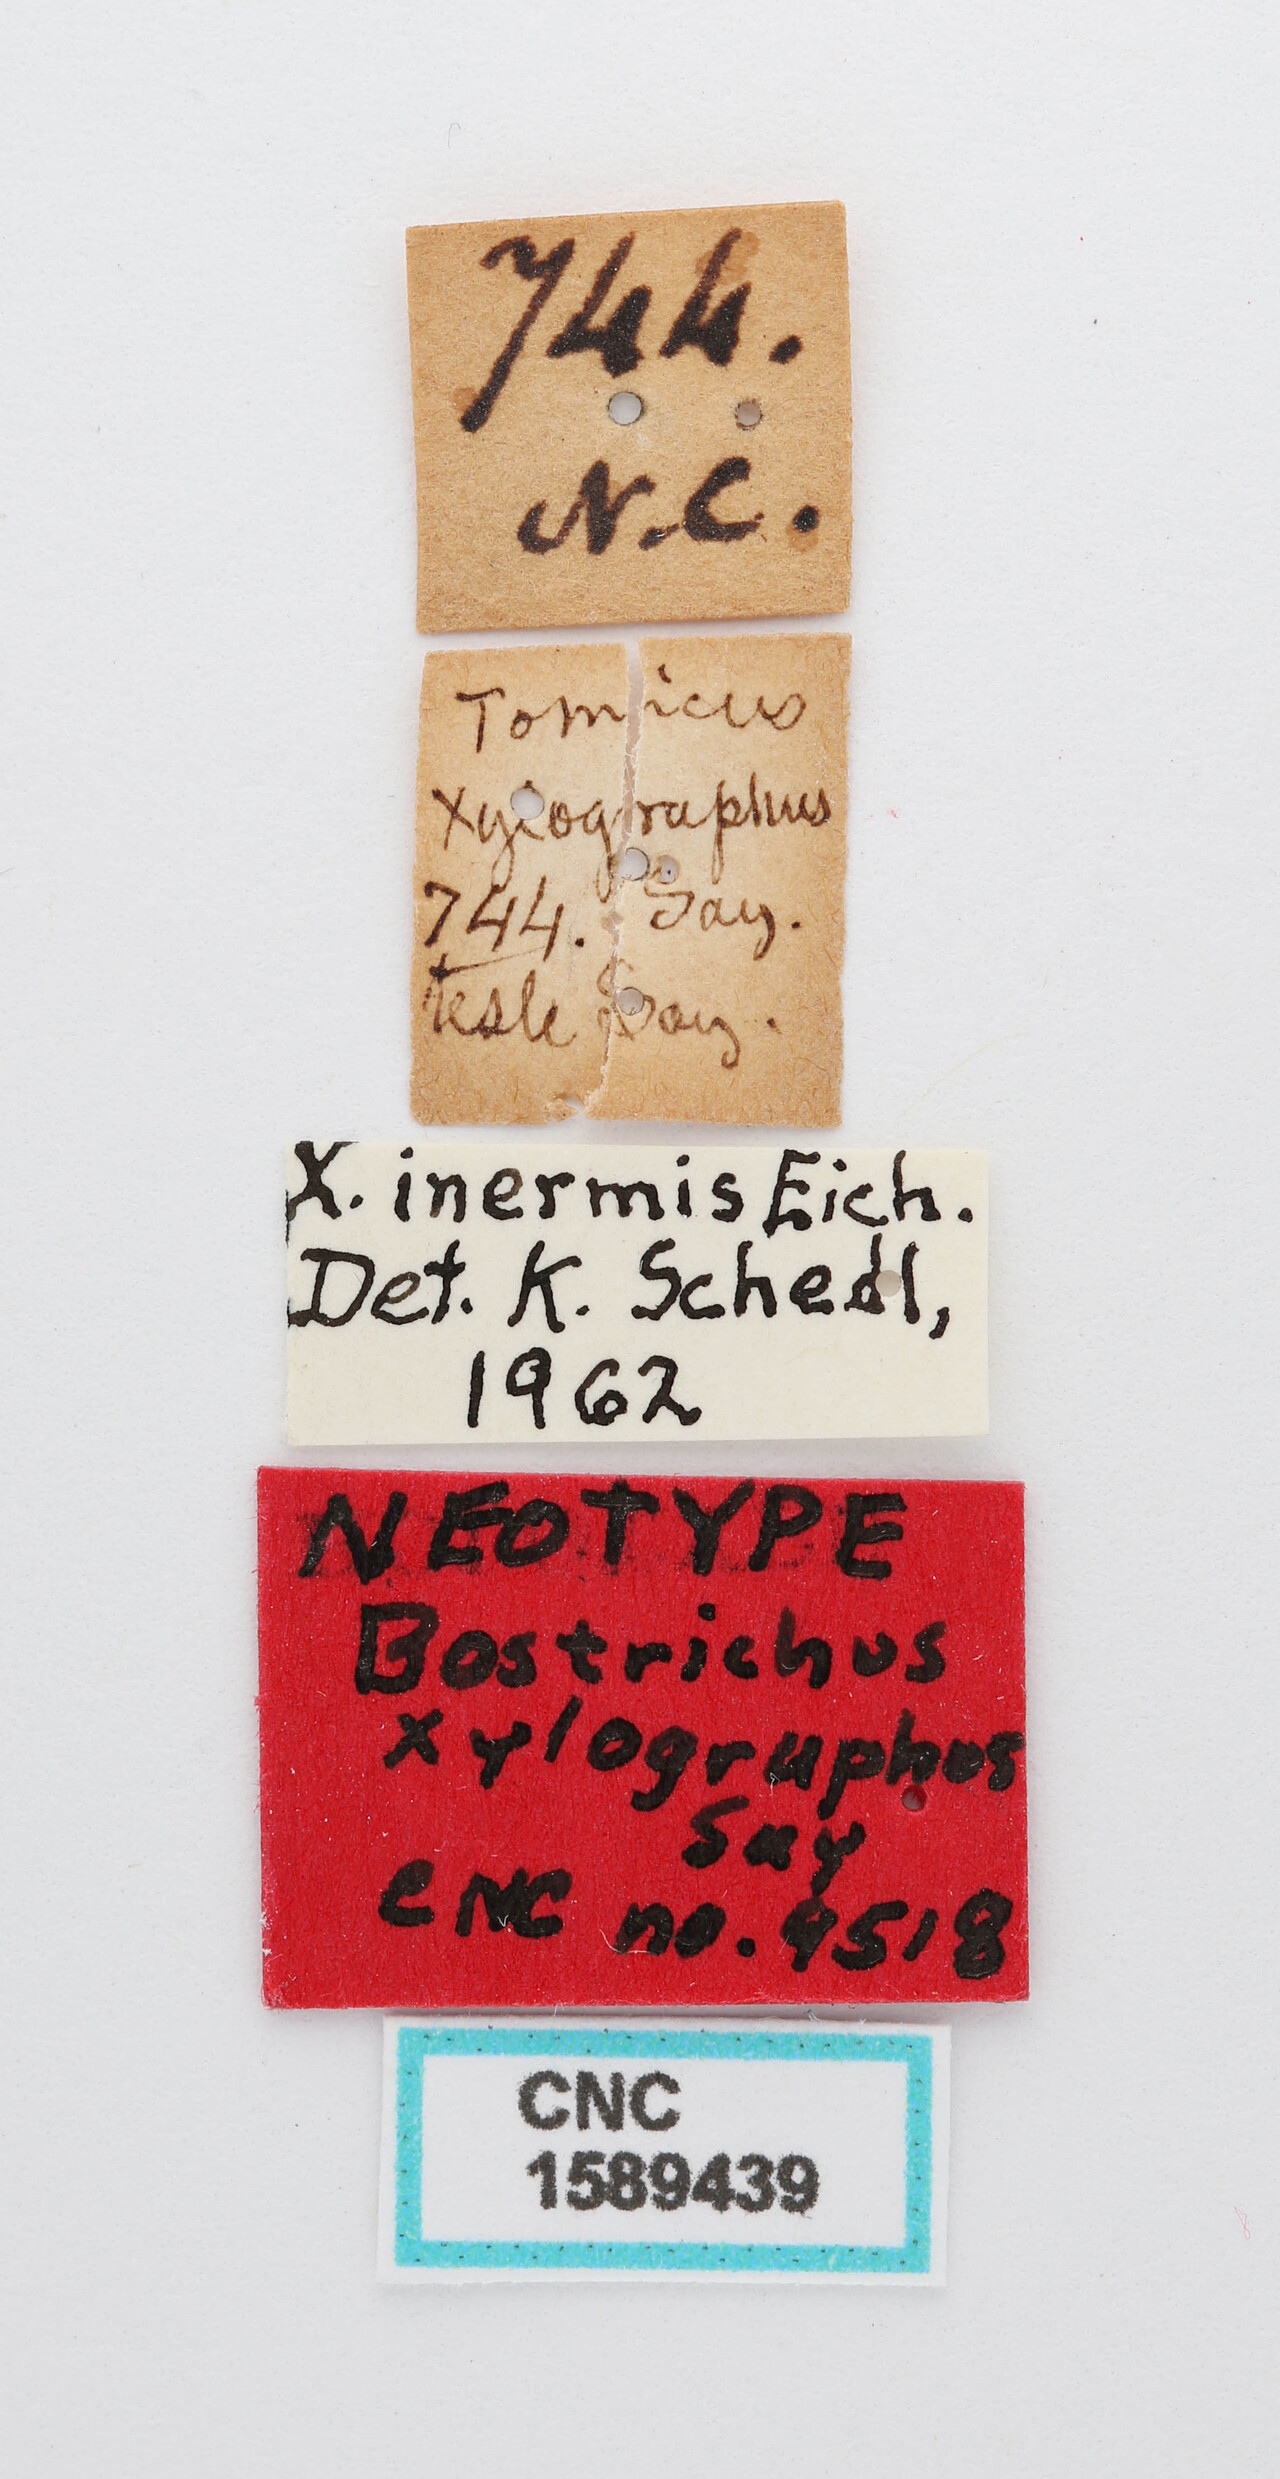 744.
N.C.
Tomicus
Xylographus
744. Say.
teste Say.
X. inermis Eich.
Det. K. Schedl,
1962
NEOTYPE
Bostrichus
xylographus
Say
CNC no. 9518
CNC
1589439